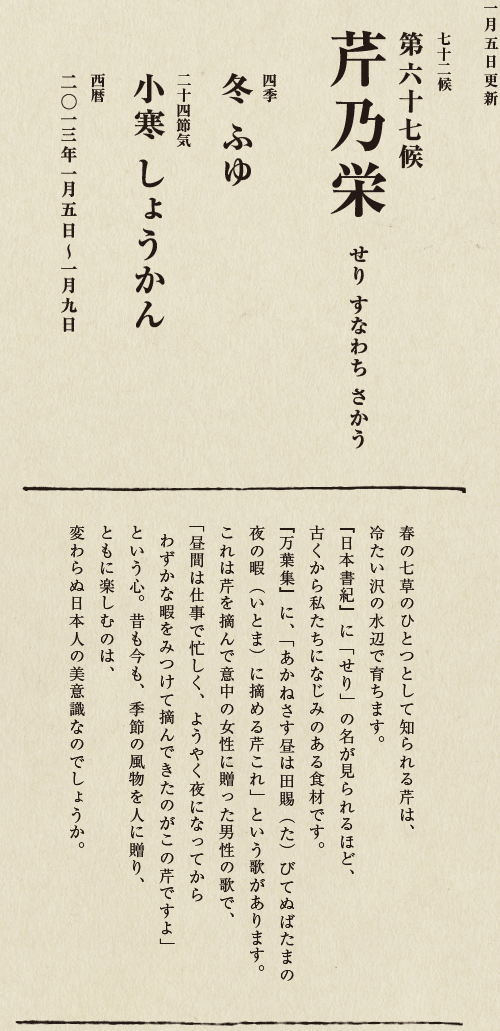 一月五日更新
七十二候
第六十七候
芹乃栄 せり すなわち さかう
四季
冬 ふゆ
二十四節気
小寒 しょうかん
西暦
二〇一三年一月五日〜一月九日
春の七草のひとつとして知られる芹は、
冷たい沢の水辺で育ちます。
『日本書紀』に「せり」の名が見られるほど、
古くから私たちになじみのある食材です。
『万葉集』に、「あかねさす昼は田賜（た）びてぬばたまの
夜の暇（いとま）に摘める芹これ」という歌があります。
これは芹を摘んで意中の女性に贈った男性の歌で、
「昼間は仕事で忙しく、ようやく夜になってから
わずかな暇をみつけて摘んできたのがこの芹ですよ」
という心。昔も今も、季節の風物を人に贈り、
ともに楽しむのは、
変わらぬ日本人の美意識なのでしょうか。